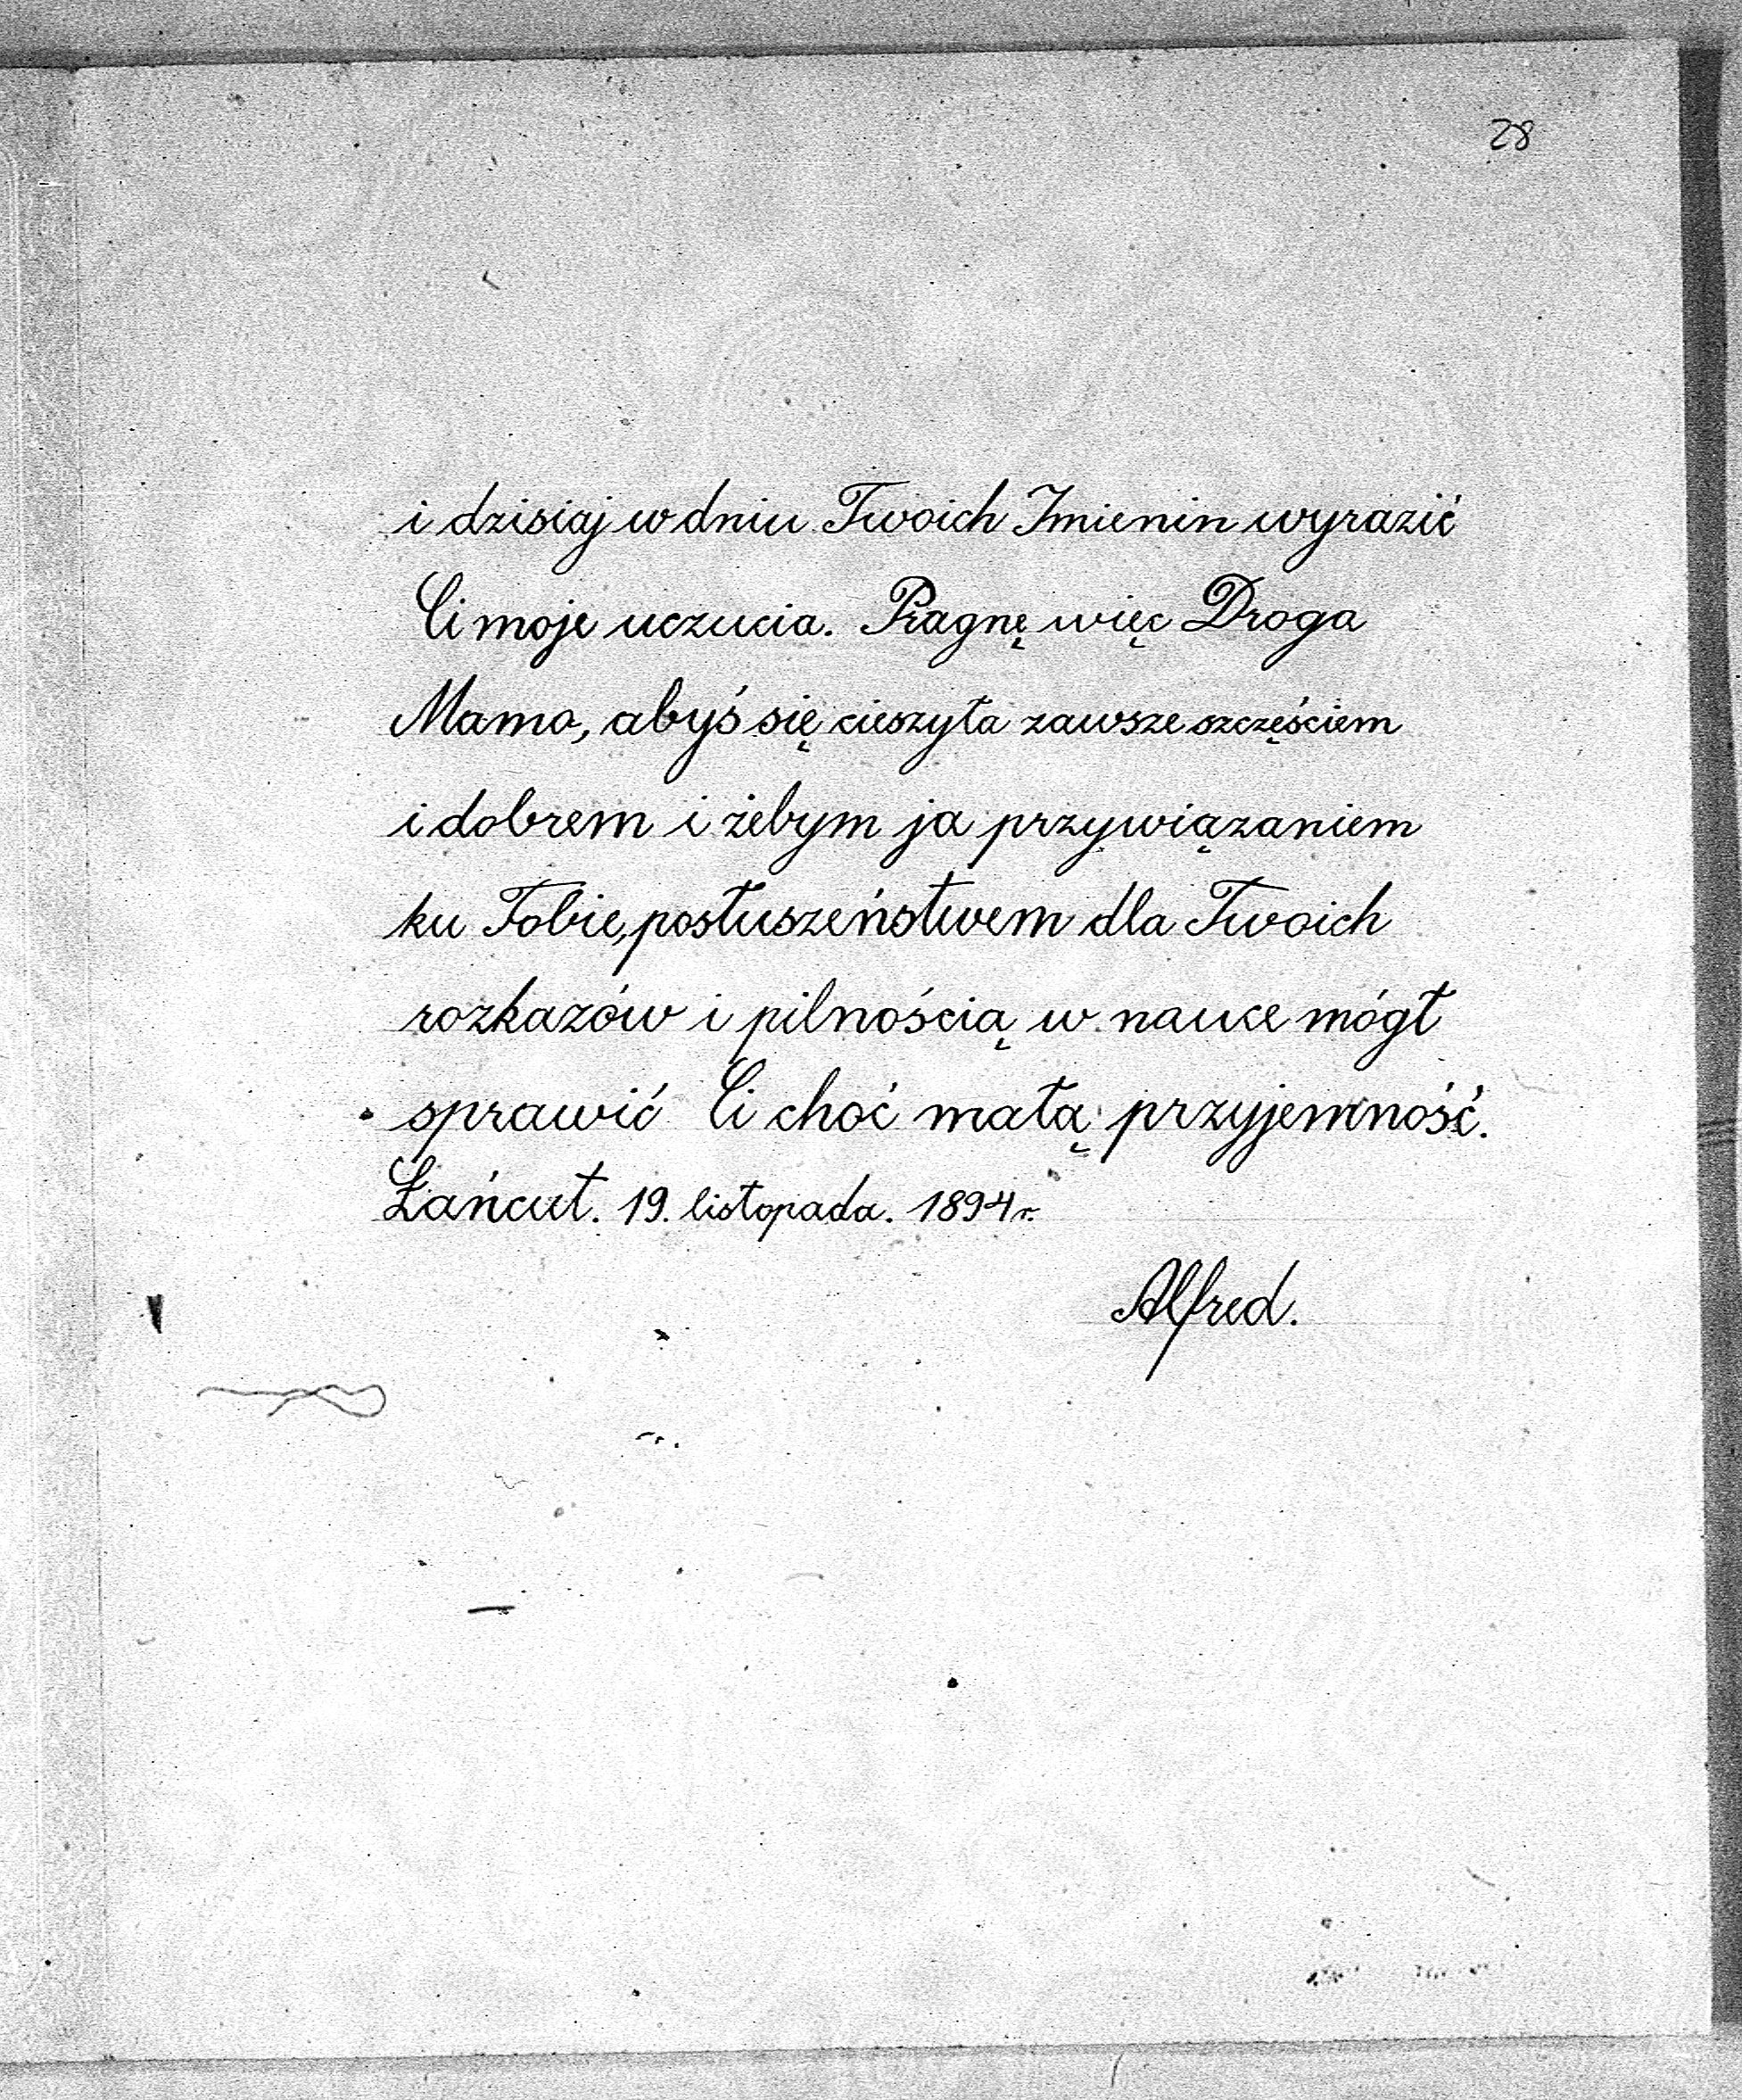 28
i dzisiaj w dniu Twoich Imienin wyrazić
Ci moje uczucia. Pragnę więc Droga
Mamo, abyś się cieszyła zawsze szczęściem
i dobrem i żebym ja przywiązaniem
ku Tobie, posłuszeństwem dla Twoich
rozkazów i pilnością w nauce mógł
sprawić Ci choć małą przyjemność.
Łańcut. 19. listopada. 1894 r.
Alfred.